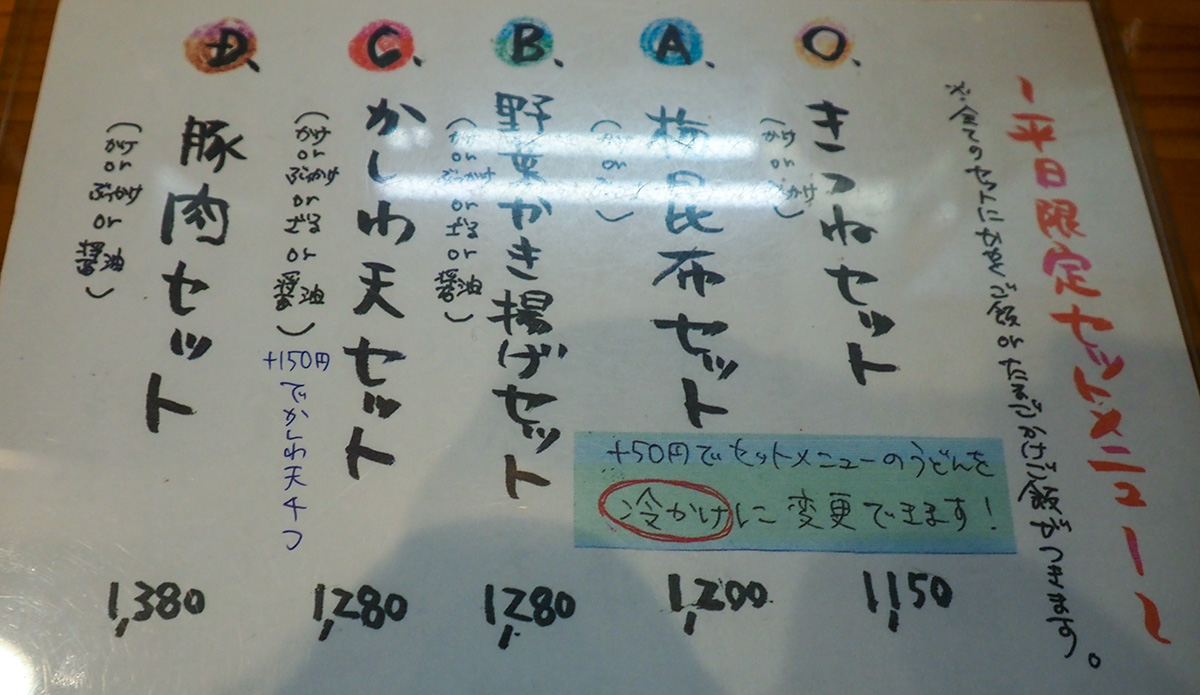 ~平日限定セットメニュー~
※全てのセットにかやくご飯or たまごかけご飯がつきます。
O、きつねセット
(かけ or ぶっかけ)
1,150
A、梅昆布セット
1,200
B、野菜かき揚げセット
(かけ or ぶっかけ or ざる or 醤油)
1,280
C、かしわ天セット
(かけ or ぶっかけ or ざる or 醤油)
+150円でかしわ天4つ
1,280
D、豚肉セット
(かけ or ぶっかけ or 醤油)
1,380
+50円でセットメニューのうどんを
冷かけに変更できます!